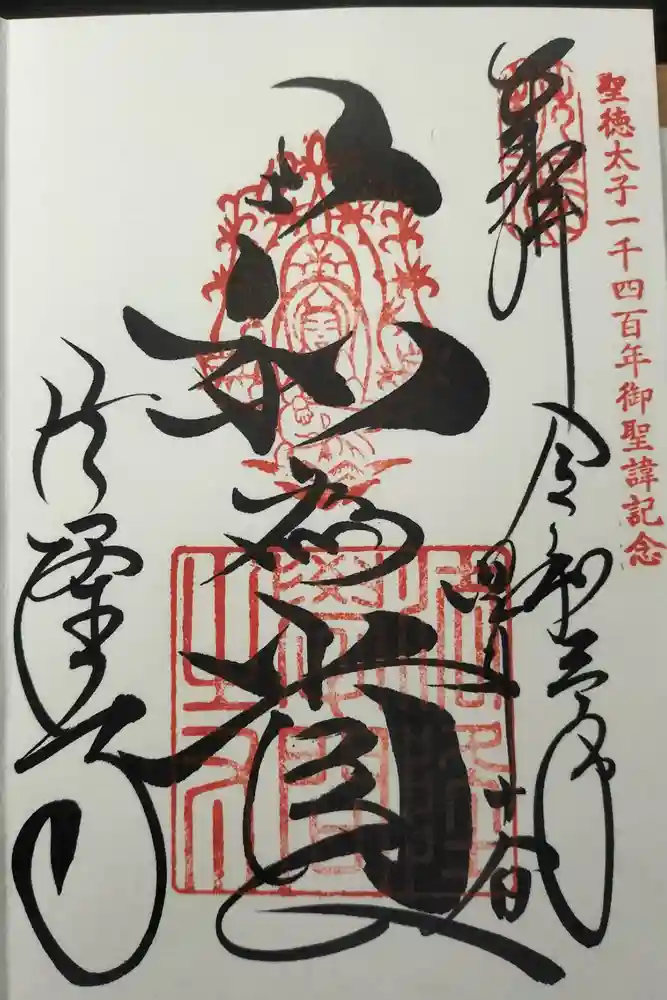 聖徳太子一千四百年御聖諱記念
奉拝
令和三年
以和為貴
法隆寺